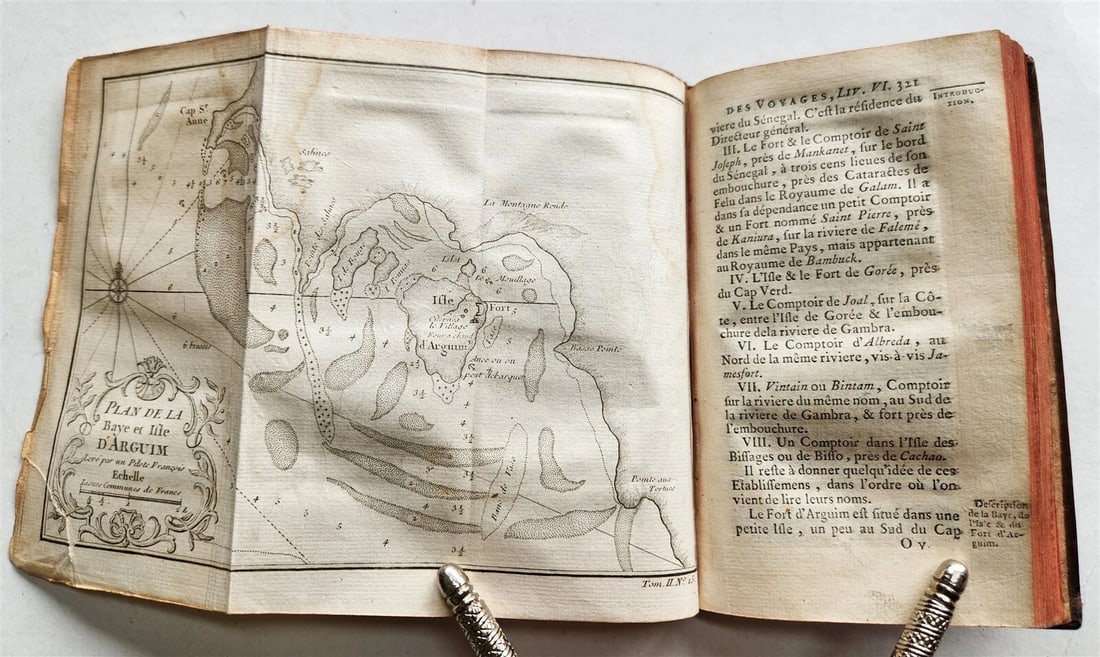 Cap Ste
Anne
Salines
La Montagne Ronde
Pointe des Salines
Mouillage
Isle
Fort
le Village
d'Arguim
Ance ou on
peut débarquer
Basse Pointe
6 brasses
Pointe aux
Tortues
PLAN DE LA
Baye et Isle
D'ARGUIM
Levé par un Pilote François
Echelle
Lieues Communes de France
Tom. II. N.º
DES VOYAGES, LIV. VI. 321
INTRODUC-
TION.
viere du Sénegal. C'est la résidence du
Directeur général.
III. Le Fort & le Comptoir de Saint
Joseph, près de Mankanet, sur le bord
du Sénegal, à trois cens lieues de son
embouchure, près des Cataractes de
Felu dans le Royaume de Galam. Il a
dans sa dépendance un petit Comptoir
& un Fort nommé Saint Pierre, près
de Kaniura, sur la riviere de Falemé,
dans le même Pays, mais appartenant
au Royaume de Bambuck.
IV. L'Isle & le Fort de Gorée, près
du Cap Verd.
V. Le Comptoir de Joal, sur la Cô-
te, entre l'Isle de Gorée & l'embou-
chure de la riviere de Gambra.
VI. Le Comptoir d'Albreda, au
Nord de la même riviere, vis-à-vis Ja-
mesfort.
VII. Vintain ou Bintam, Comptoir
sur la riviere du même nom, au Sud de
la riviere de Gambra, & fort près de
l'embouchure.
VIII. Un Comptoir dans l'Isle des
Bissages ou de Bisso, près de Cachao.
Il reste à donner quelqu'idée de ces
Etablissemens, dans l'ordre où l'on
vient de lire leurs noms.
Le Fort d'Arguim est situé dans une
petite Isle, un peu au Sud du Cap
O v
Description
de la Baye, de
l'Isle & du
Fort d'Ar-
guim.